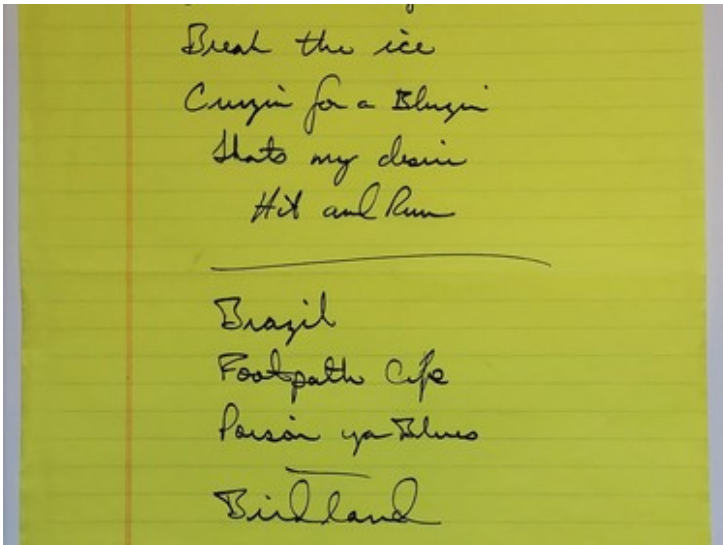 Break the ice
Cruzin for a Bluzin
Thats my desire
Hit and Run
Brazil
Footpath Cafe
Parisian
Birdland